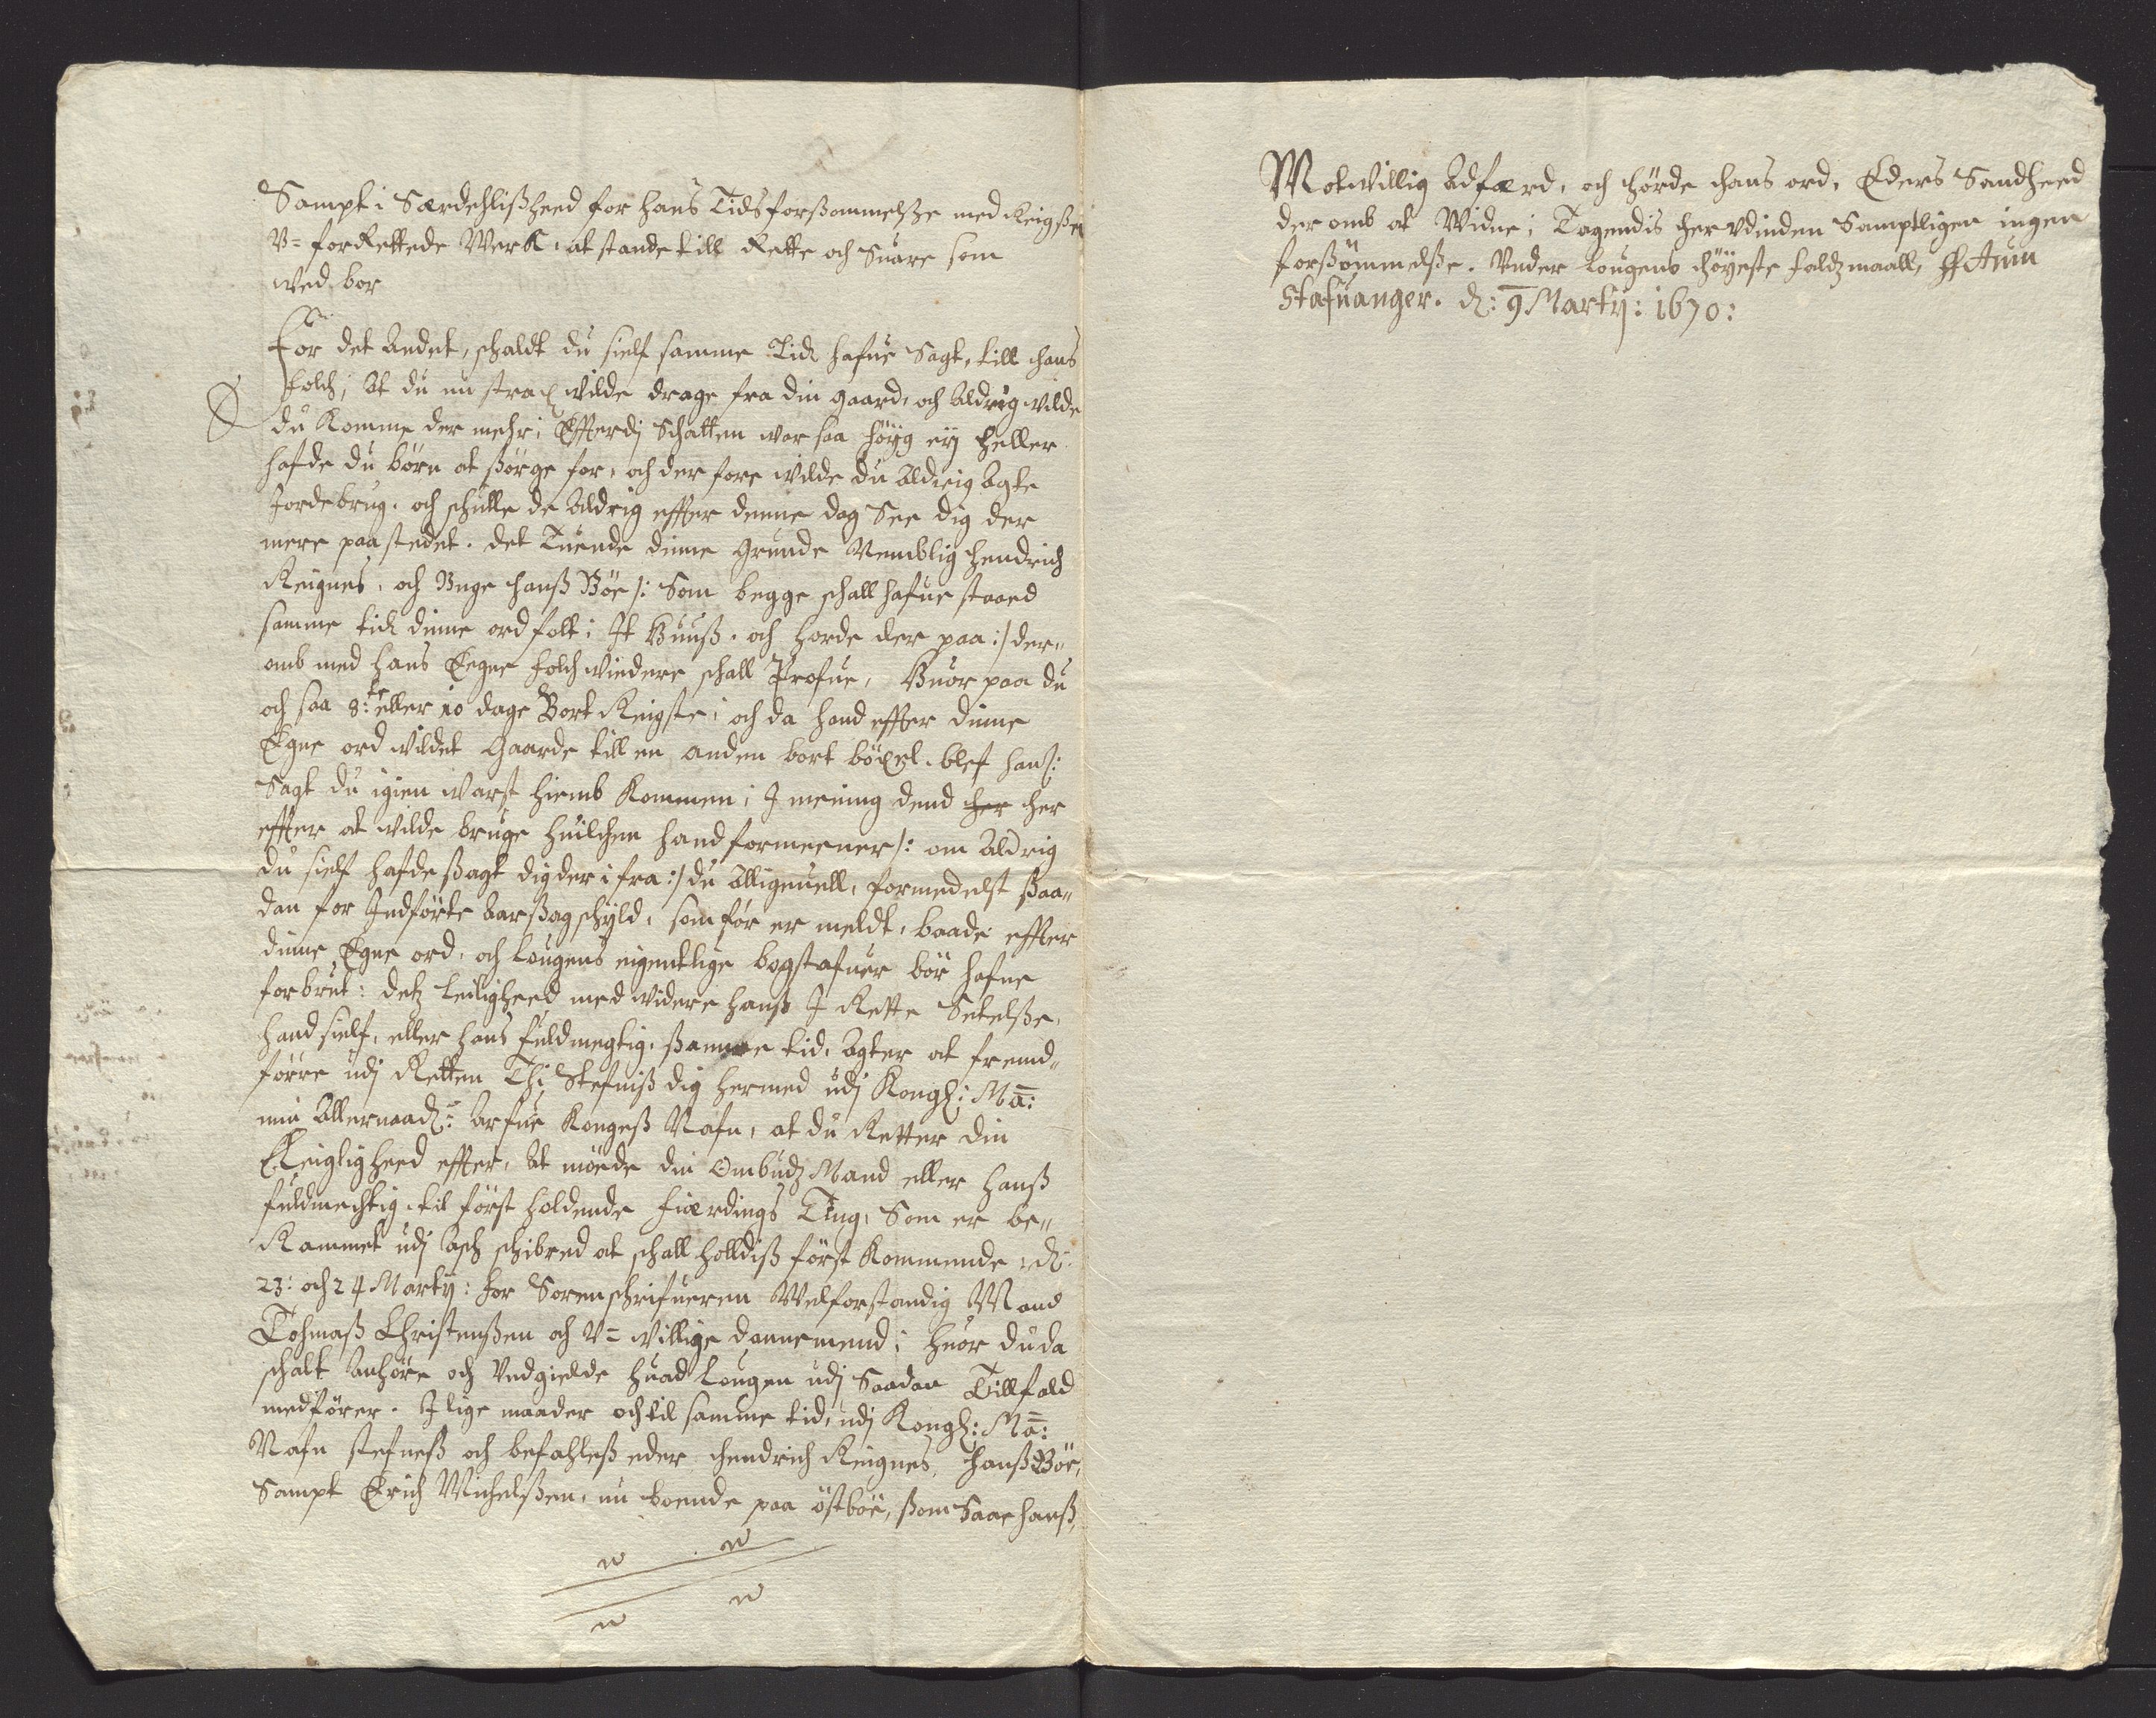 Sampt i Særdehlißheed for hans Tids forßømmelße med Reigßen
V= forRettede Werk, at stande till Rette och Suare som
wed bør
For det Andet, schaldt du sielf samme Tid hafue Sagt, till hans
folch, At du nu strax wilde drage fra din gaard, och Aldrig wilde
du komme der mehr, Efterdj Schatten war saa høyg eÿ heller
hafde du børn at ßørge for, och der fore wilde du Aldrig Agte
Jordebrug, och schulle de Aldrig effter denne dag See dig der
mere paa stedet. det Tuende dinne grunde Nemblig Hendrich
Reignes, och Unge Hanß Bøe /: Som begge schall hafue staaed
samme tid dinne ord folt i It Huuß, och horde der paa :/ der„
omb med hans Eegne folch widere schall Profue, Huor paa du
och saa 8: eller 10 dage Bort Reigste, och da hand effter dinne
Egne ord wildet Gaarde till en anden bort bøxel, blef han /:
Sagt du igien warst hiemb kommen, I mening dend her
effter at wilde bruge huilchen hand formeener /: om Aldrig
du sielf hafde ßagt dig der i fra :/ du Alligeuell, formedelst ßaa„
dan for Indførte Aarßag schyld, som før er meldt, baade effter
dinne Egne ord, och Lougens eigentlige bogstafuer bør hafue
forbrut: detz Leiligheed med widere hanß I Rette Setelße,
hand sielf, eller hans fuldmegtig, ßamme tid, Agter at fremd„
førre udj Retten Thi Stefniß dig hermed udj Kongl: Ma:
min Allernaad: Arfue Kongeß Nafn, at du Retter din
Leigligheed effter, At møede din Ombudz Mand eller hanß
fuldmechtig, til først holdende fierdings Ting, Som er be„
Rammet udj Asch schibred at schall holldiß først kommende d:
23: och 24 Martÿ: for Sorenschrifueren Welforstandig Mand
Tohmaß Christenßen och V= willige dannemend, huor du da
schalt Anhøre och Undgielde huad Lougen udj Saadan Tillfald
medfører. I lige maader och til samme tid, udj Kongl: Ma:
Nafn stefneß och befahleß eder Hendrich Reignes, Hanß Bøe,
Sampt Erich Michelßen, nu boende paa østbøe, ßom Saae hanß
Motwillig Adfærd, och hørde hans ord, Eders Sandheed
der omb at Widne, Tagendis her udinden Samptligen ingen
forßømmelße. Under Lougens høyeste faldzmaall, Actum
Stafuanger. d: 9 Martÿ: 1670: